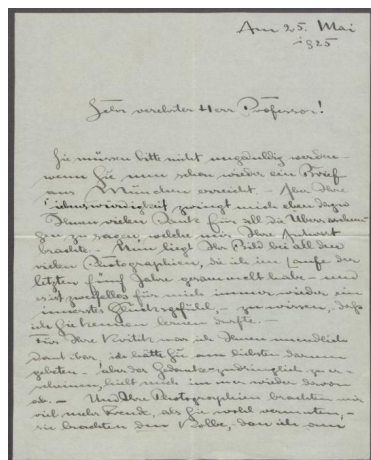 Am 25. Mai
1925
Sehr verehrter Herr Professor!
Sie müssen bitte nicht ungeduldig werden
wenn Sie nun schon wieder ein Brief
aus München erreicht. – Aber Ihre
Liebenswürdigkeit zwingt mich eben dazu
Ihnen vielen Dank für all die Überraschun-
gen zu sagen, welche mir Ihre Antwort
brachte. – Nun liegt Ihr Bild bei all den
vielen Photographien, die ich im Laufe der
letzten fünf Jahre gesammelt habe – und
es ist zweifellos für mich immer wieder ein
Glücksgefühl, – zu wissen, daß
ich Sie kennen lernen durfte. –
Für Ihre Kritik war ich Ihnen unendlich
dankbar, ich hätte Sie am liebsten darum
gebeten – aber das Gedanke zudringlich zu er-
scheinen, hielt mich immer wieder davon
ab. – Und Ihre Photographien brachten mir
viel mehr Freude, als Sie wohl vermuten, –
sie brachten den Wolke, den ich am